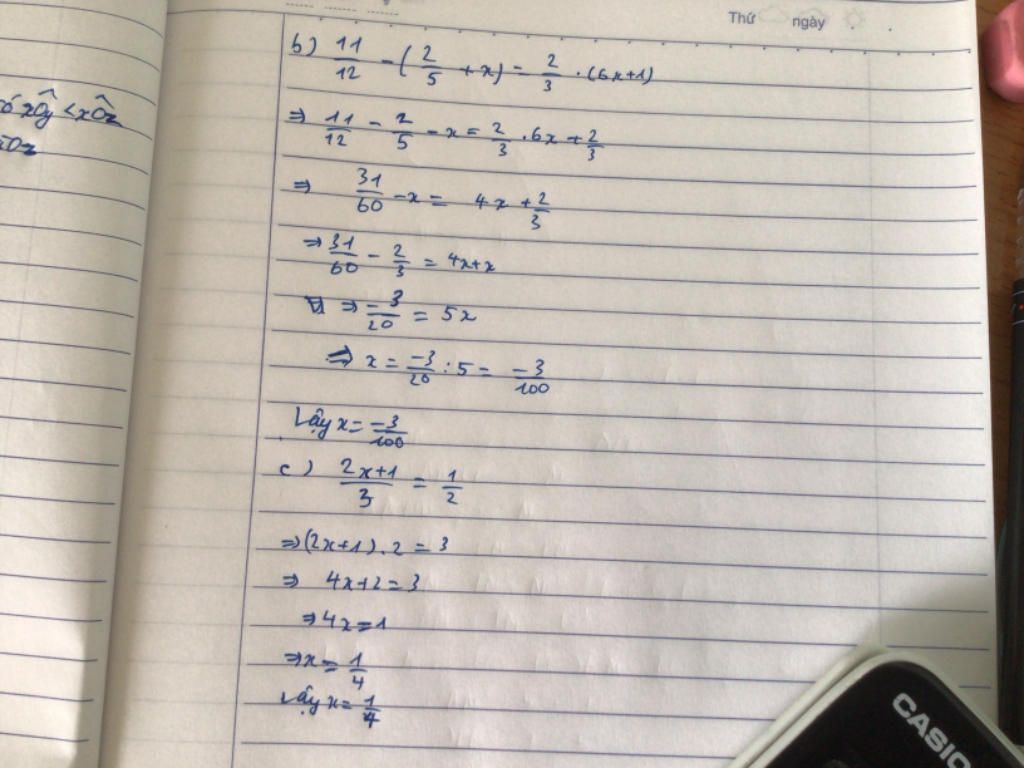 Thứ ngày
có xÔy < xÔz
Oz
b) 11/12 - (2/5 + x) = 2/3 . (6x+1)
⇒ 11/12 - 2/5 - x = 2/3 . 6x + 2/3
⇒ 31/60 - x = 4x + 2/3
⇒ 31/60 - 2/3 = 4x+x
⇒ -3/20 = 5x
⇒ x = -3/20 : 5 = -3/100
Vậy x = -3/100
c) 2x+1/3 = 1/2
⇒ (2x+1) . 2 = 3
⇒ 4x+2 = 3
⇒ 4x = 1
⇒ x = 1/4
Vậy x = 1/4
CASIO